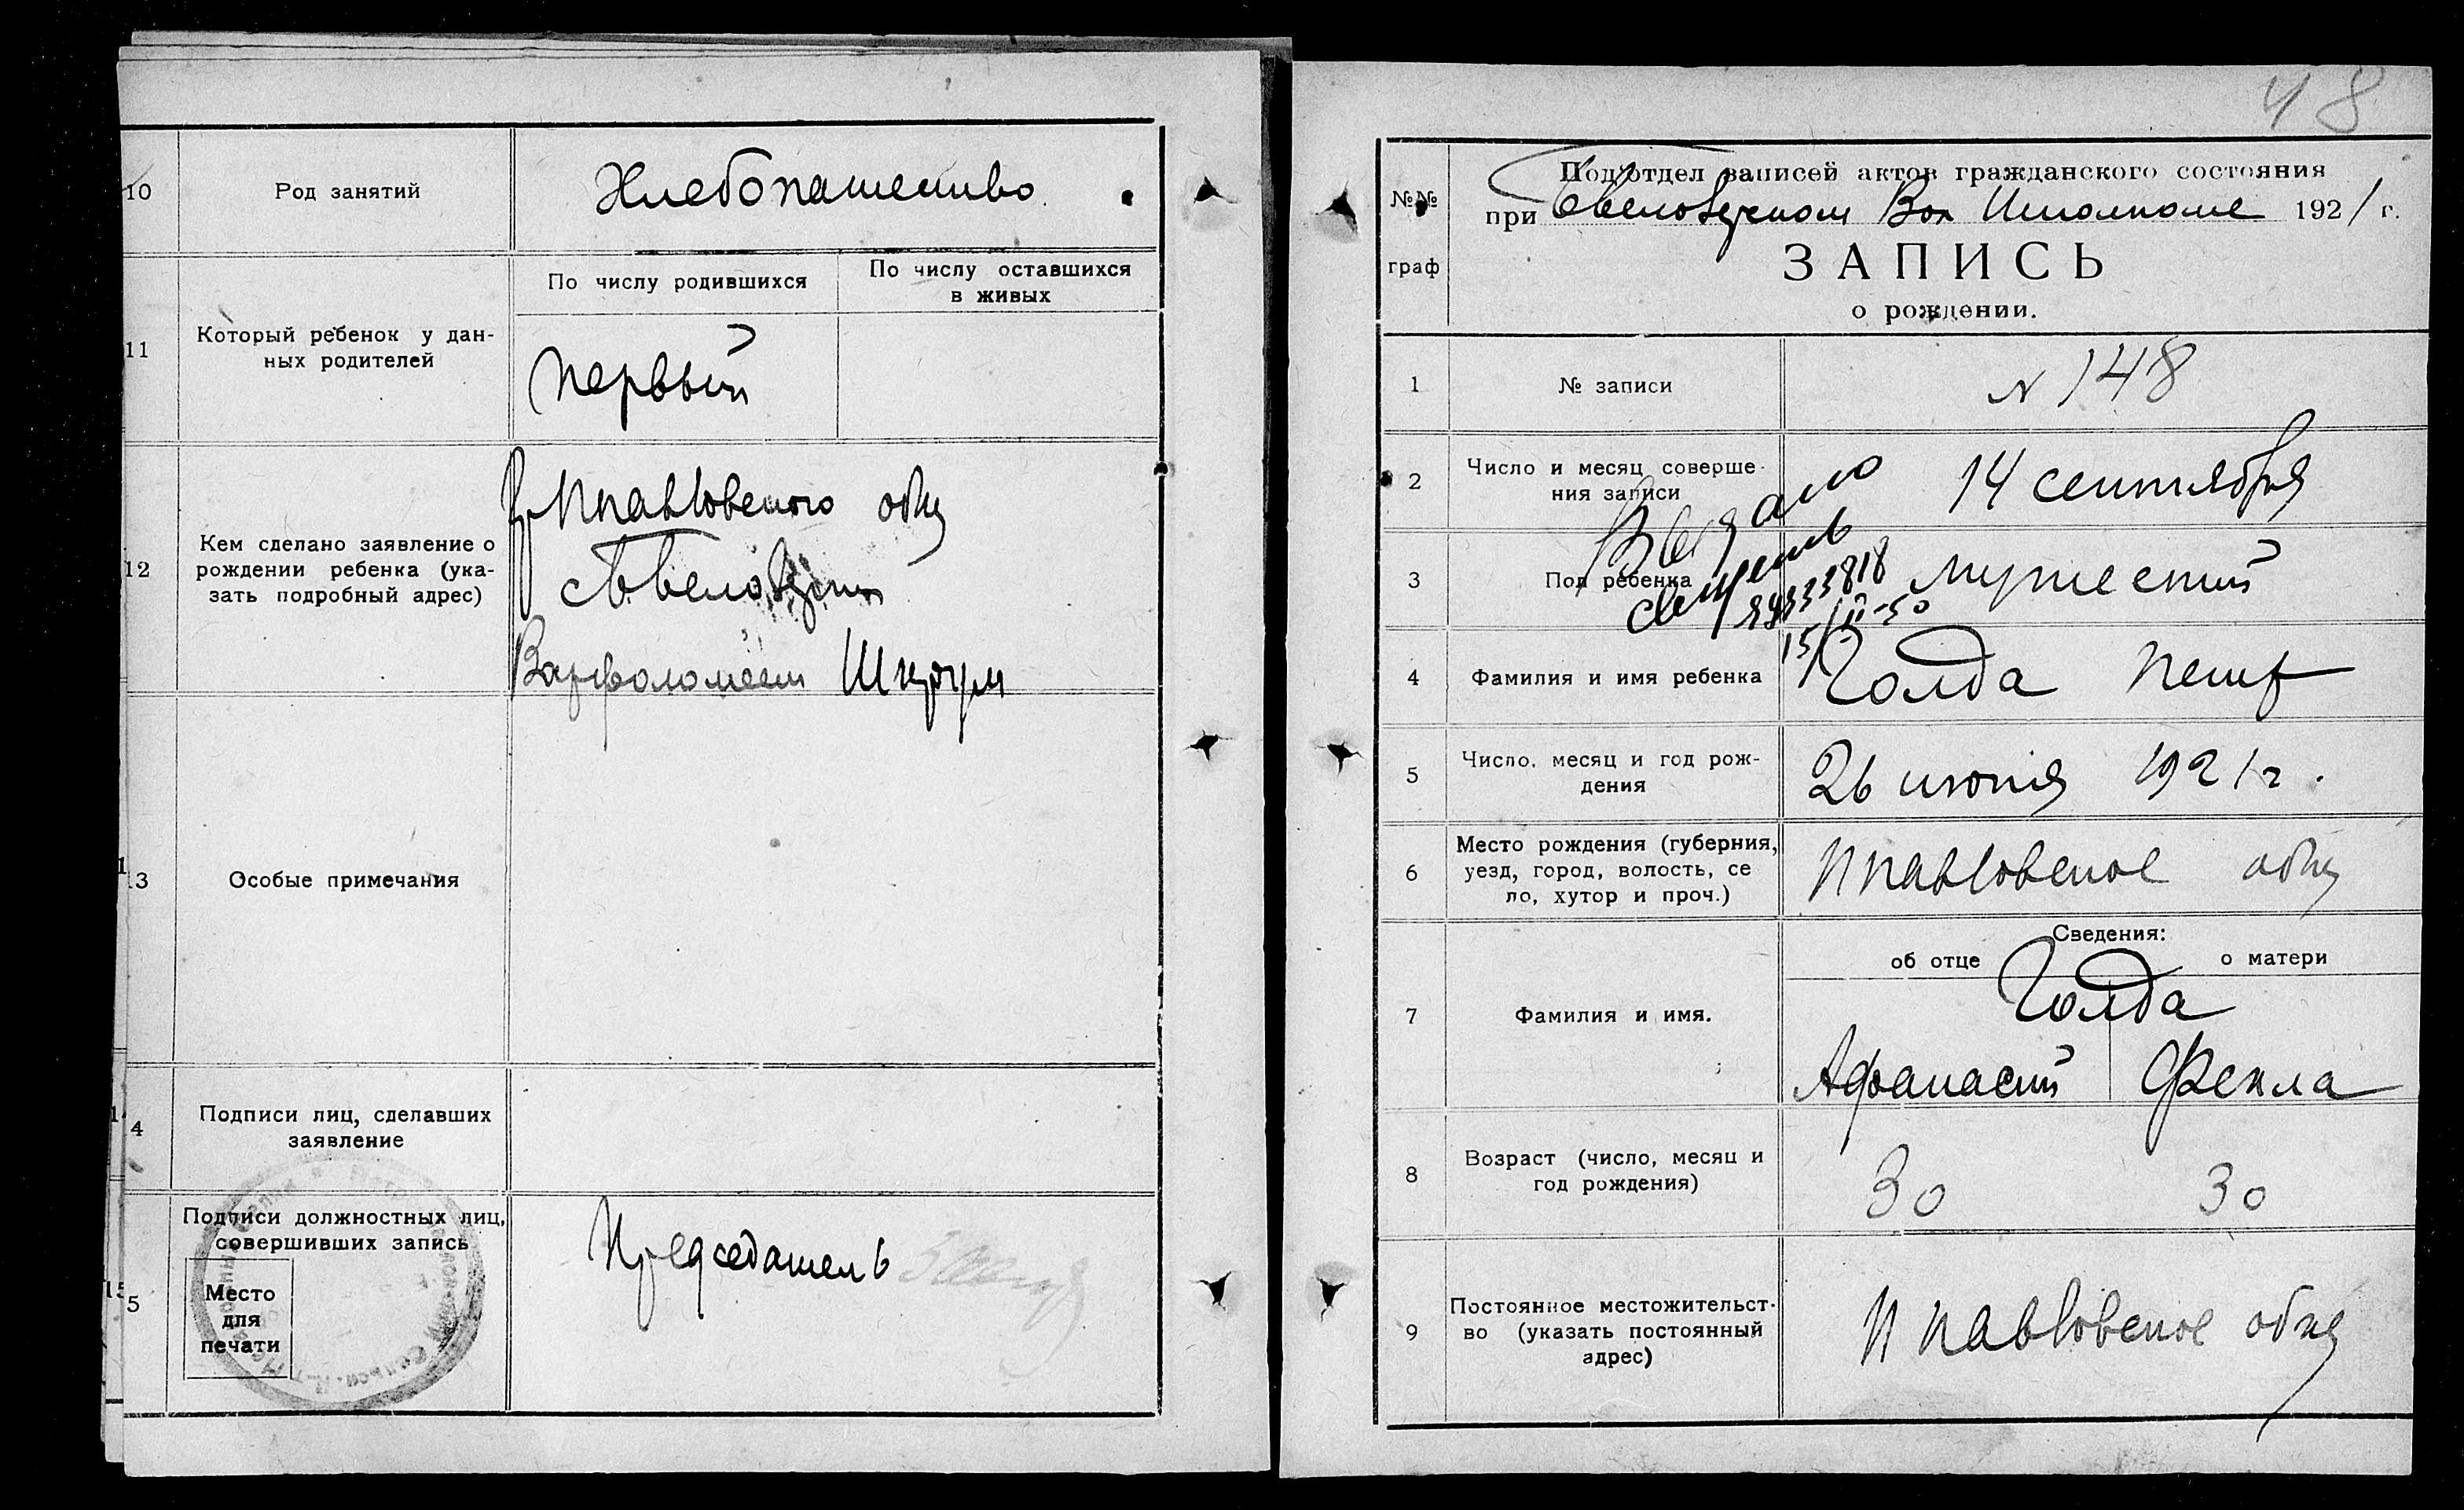 10
Род занятий
Хлебопашество.
11
Который ребенок у дан-
ных родителей
По числу родившихся
По числу оставшихся
в живых
первый
12
Кем сделано заявление о
рождении ребенка (ука-
зать подробный адрес)
общ
Варфоломеем
13
Особые примечания
14
Подписи лиц, сделавших
заявление
15
Подписи должностных лиц,
совершивших запись
Место
для
печати
Председатель
48
№№
граф
Подотдел записей актов гражданского состояния
при Вол Исполкоме 1921 г.
ЗАПИСЬ
о рождении.
1
№ записи
N 148
2
Число и месяц соверше-
ния записи
14 сентября
Выдано
3
Пол ребенка
мужеский
4
Фамилия и имя ребенка
Голда Петр
5
Число, месяц и год рож-
дения
26 июня 1921 г.
6
Место рождения (губерния,
уезд, город, волость, се
ло, хутор и проч.)
общ
Сведения:
об отце
о матери
7
Фамилия и имя.
Голда
Афанасий
Фекла
8
Возраст (число, месяц и
год рождения)
30
30
9
Постоянное местожительст-
во (указать постоянный
адрес)
общ